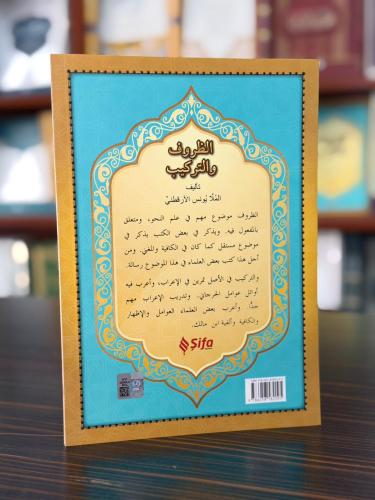 الظروف
والتركيب
تأليف
الملا يونس الأرقطني
الظروف موضوع مهم في علم النحو، ومتعلق
بالمفعول فيه. ويذكر في بعض الكتب يذكر في
موضوع مستقل كما كان في الكافية والمغني. ومن
أجل هذا كتب بعض العلماء في هذا الموضوع رسالة.
والتركيب في الأصل تمرين في الإعراب، وأعرب فيه
أوائل عوامل الجرجاني. وتدريب الإعراب مهم
جدًا. وأعرب بعض العلماء العوامل والإظهار
والكافية وألفية ابن مالك.
Şifa